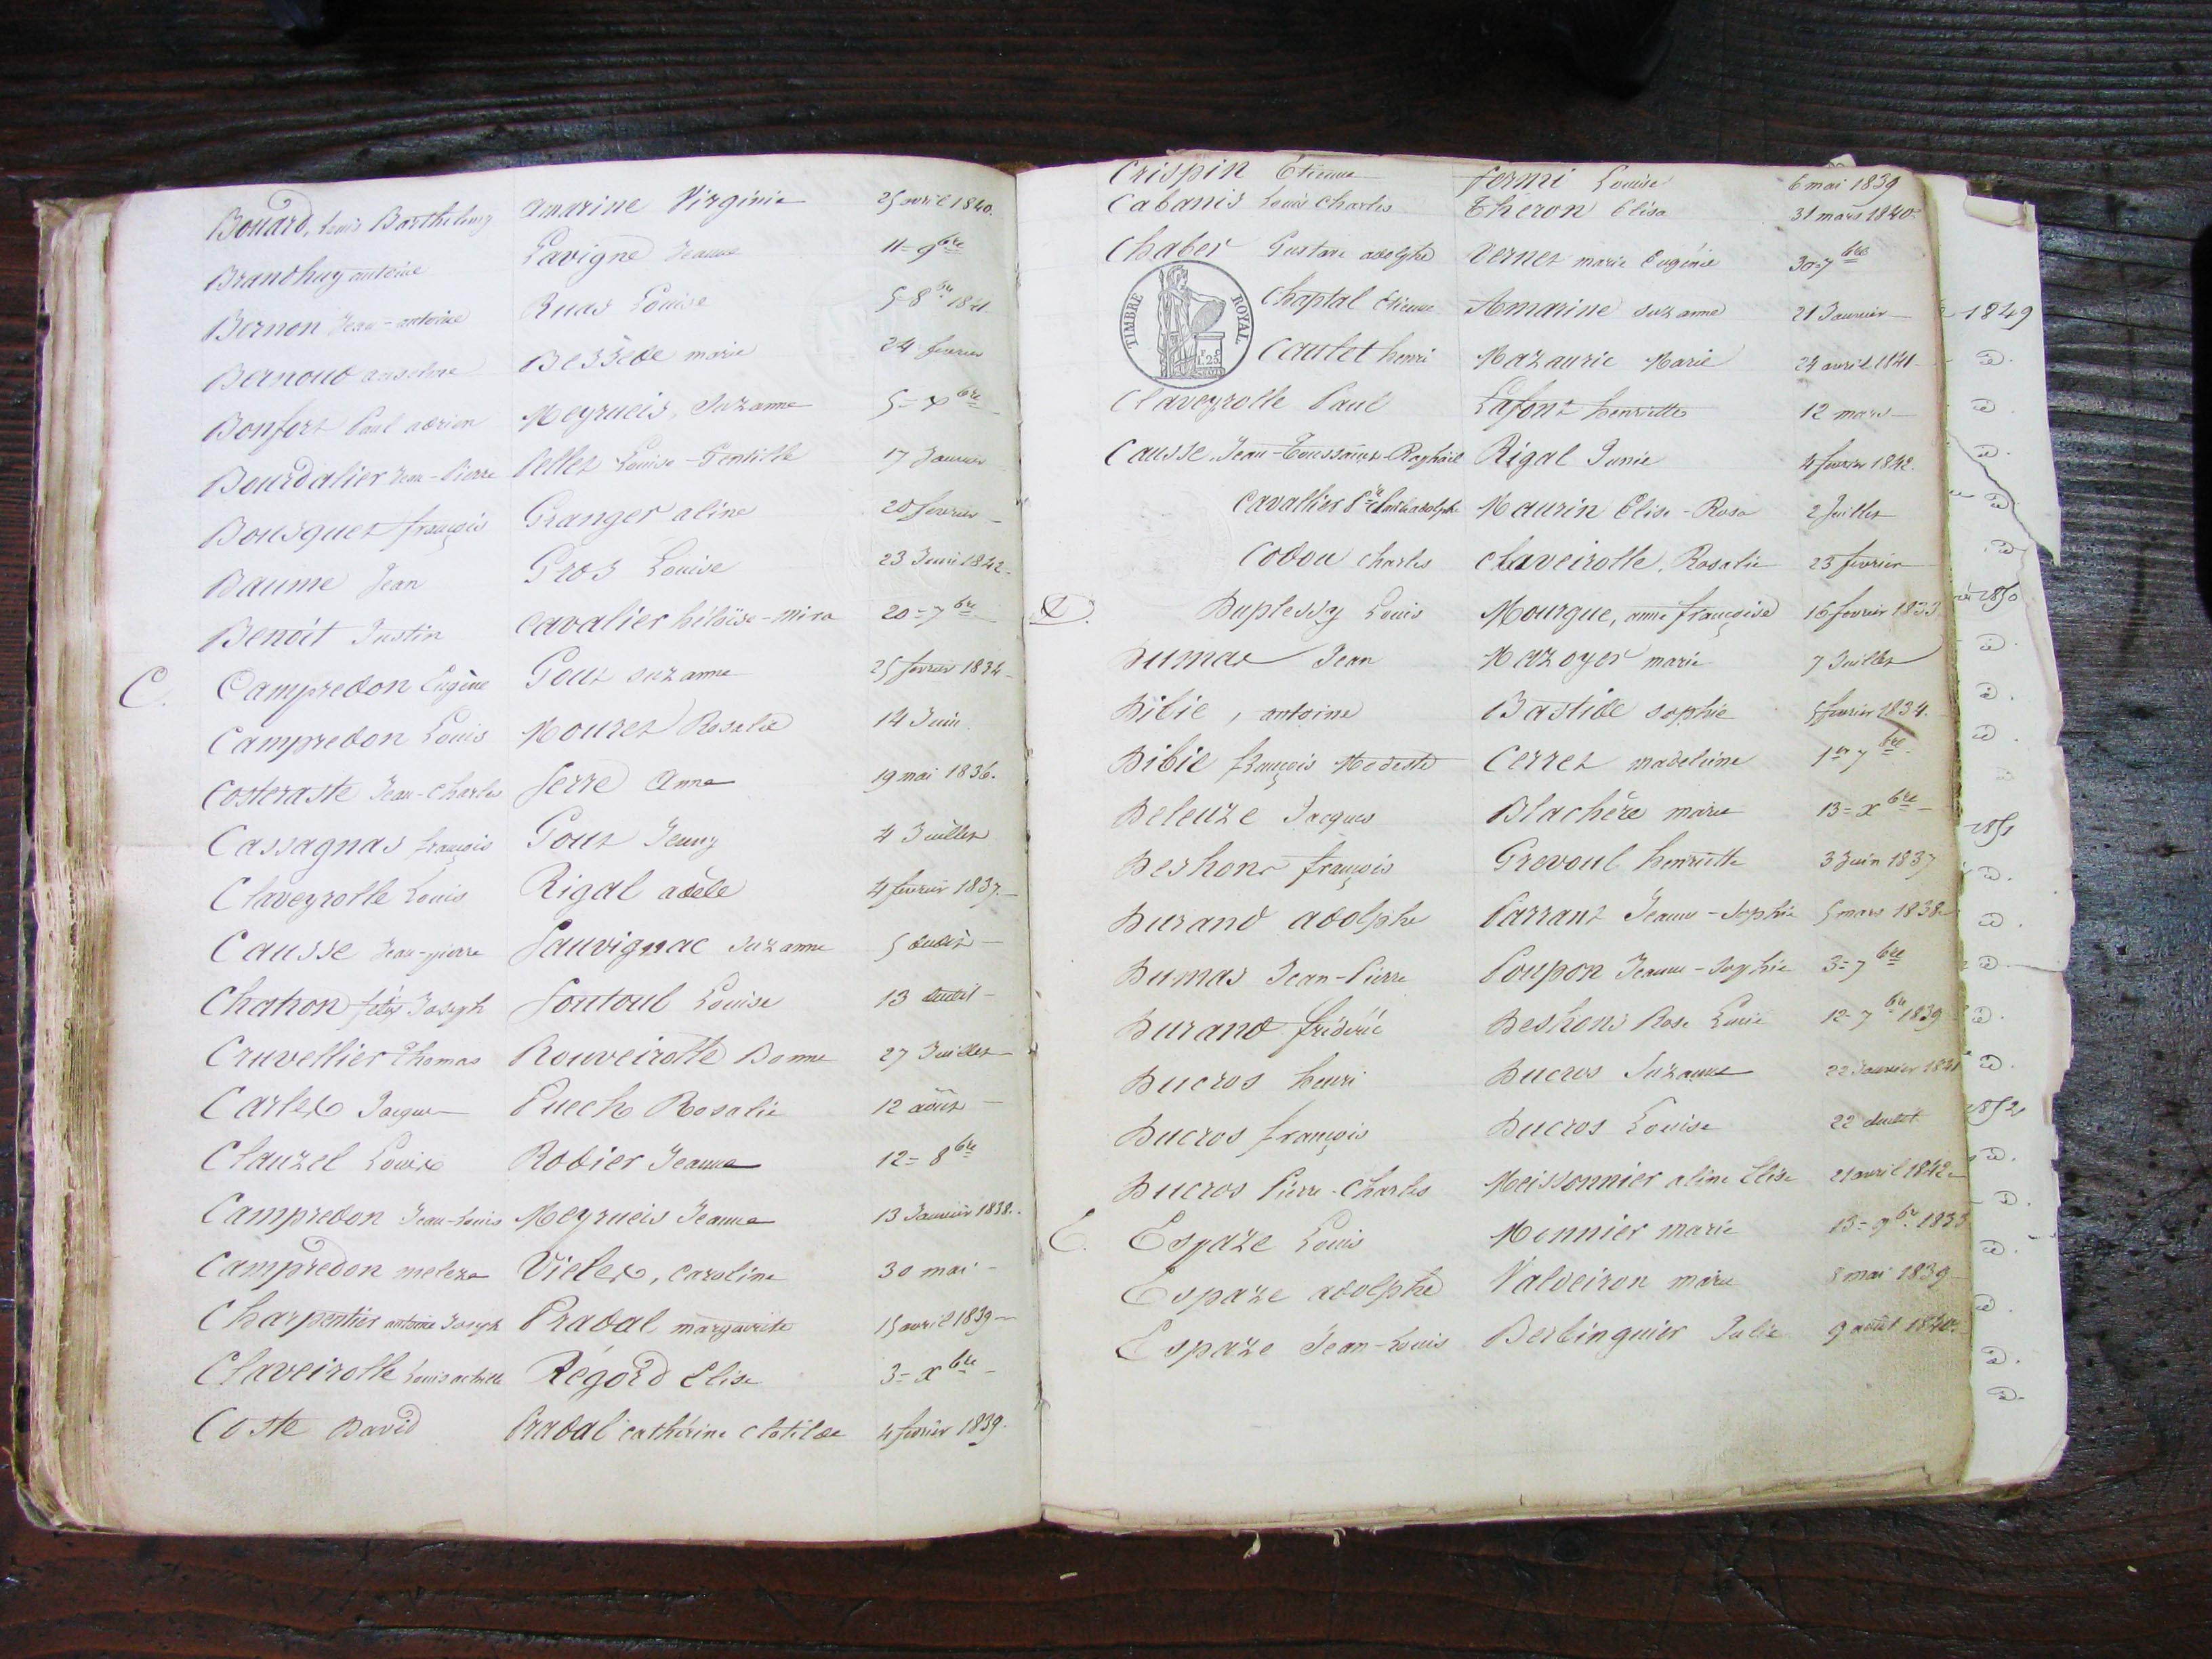 Bouard, Louis Barthelemy Amarine Virginie 25 avril 1840.
Brandhuy antoine Lavigne Jeanne 11 = 9bre
Bernon Jean-antoine Ruas Louise 5 = 8bre 1841
Bernoud anselme Bessede marie 24 fevrier
Bonfort Paul adrien Meyrueis, Suzanne 5 = xbre
Bourdalier Jean-Pierre Pellet Louise-Gentille 17 Janvier
Bousquet françois Granger aline 20 fevrier
Baume Jean Gros Louise 23 Juin 1842
Benoit Justin Cavalier héloïse-mira 20 = 7bre
C. Campredon Eugène Gout suzanne 25 fevrier 1834
Campredon Louis Mouret Rosalie 14 Juin
Costeraste Jean-Charles Serre Anne 19 mai 1836.
Cassagnas françois Gout Jenny 4 Juillet
Claveyrolle Louis Rigal adèle 4 fevrier 1837.
Causse Jean-pierre Sauvignac Suzanne 5 dudit
Chatron félix Joseph Fontoul Louise 13 dudit
Cruvellier Thomas Rouveirolle Bonne 27 Juillet
Carle Jacques Puech Rosalie 12 août
Clauzel Louis Rodier Jeanne 12 = 8bre
Campredon Jean-Louis Meyrueis Jeanne 13 Janvier 1838.
Campredon Viele, Caroline 30 mai
Charpentier antoine Joseph Pradal marguerite 15 avril 1839
Claveirolle Louis achille Régord Elise 3 = xbre
Coste David Pradal catherine Clotilde 4 fevrier 1839.
Crispin Etienne Fermi Louise 6 mai 1839
Cabanis Louis Charles Theron Elisa 31 mars 1840.
Chaber Gustave adolphe Vernet marie Eugénie 30 = 7bre
TIMBRE ROYAL
Chaptal Etienne Amarine suzanne 21 Janvier
Caulet henri Mazauric Marie 24 avril 1841
Claveyrolle Paul Lafont henriette 12 mars
Causse, Jean-Toussaint-Raphaël Rigal Junie 4 fevrier 1842.
Cavallier adolphe Maurin Elise-Rosa 2 Juillet
Codou Charles Claveirolle, Rosalie 23 fevrier
D. Duplessy Louis Mourgue, anne françoise 16 fevrier 1833
Dumas Jean Mazoyer marie 7 Juillet
Dibie, antoine Bastide sophie 5 fevrier 1834.
Dibie françois Modeste Cerret madeleine 1er 7bre
Deleuze Jacques Blachère marie 13 = xbre
Deshons françois Grevoul henriette 3 Juin 1837
Durand adolphe Parrant Jeanne-Sophie 5 mars 1838
Dumas Jean-Pierre Poupon Jeanne-Sophie 3 = 7bre
Durand fréderic Deshons Rose Lucie 12 = 7bre 1839
Ducros henri Ducros Suzanne 22 Janvier 1841
Ducros françois Ducros Louise 22 dudit
Ducros Pierre-Charles Meissonnier aline Elise 21 avril 1842
E. Espaze Louis Monnier marie 13 = 9bre 1833
Espaze adolphe Valdeiron marie 8 mai 1839
Espaze Jean-Louis Berlinguier Julie 9 août 1840.
1849
1850
1851
1852